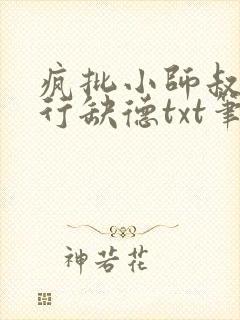 疯批小師叔
行缺德txt筆
神若花